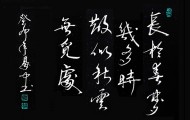 長於春夢
幾多時
散似秋雲
無覓處
癸卯